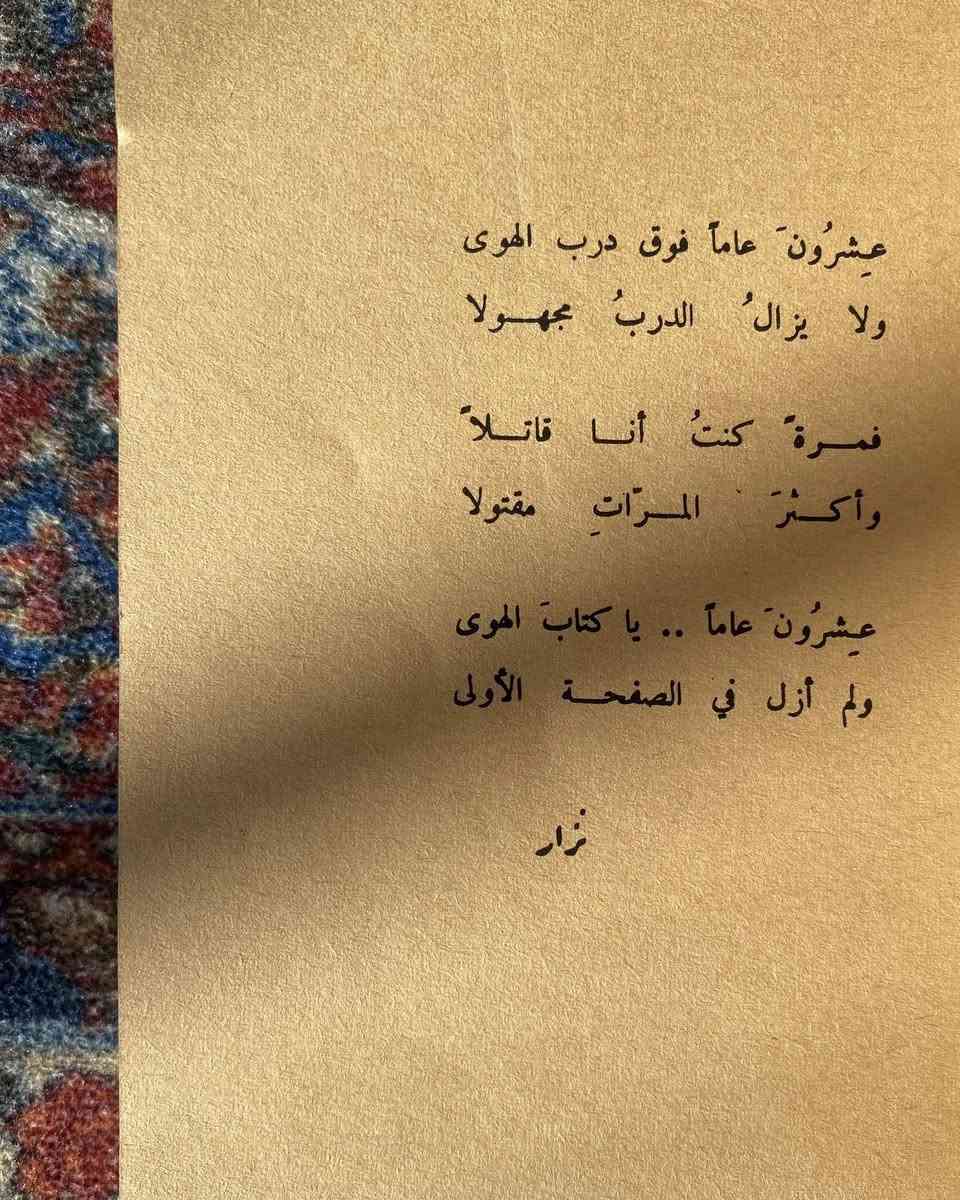 عِشرُونَ عاماً فوق درب الهوى
ولا يزالُ الدربُ مجهـولا
فمـرةً كنتُ أنـا قاتـلاً
وأكـثرَ المـرّاتِ مقتولا
عِشرُونَ عاماً .. يا كتابَ الهوى
ولم أزل في الصفحـة الأولى
نزار